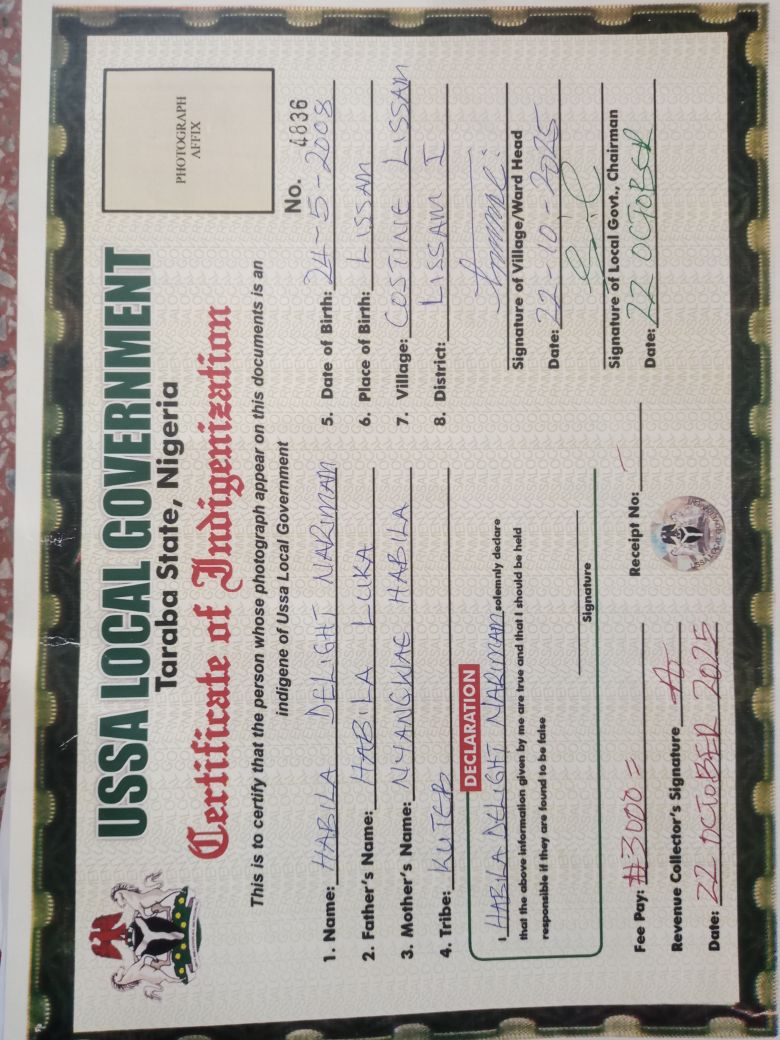 USSA LOCAL GOVERNMENT
Taraba State, Nigeria
Certificate of Indigenization
PHOTOGRAPH
AFFIX
This is to certify that the person whose photograph appear on this documents is an
indigene of Ussa Local Government
No. 4836
1. Name: HABILA DELIGHT NARIMAM
2. Father's Name: HABILA LUKA
3. Mother's Name: NYANGWAE HABILA
4. Tribe: KUTEB
5. Date of Birth: 24-5-2008
6. Place of Birth: LISSAM
7. Village: COSTINE LISSAM
8. District: LISSAM I
DECLARATION
I HABILA DELIGHT NARIMAM solemnly declare
that the above information given by me are true and that I should be held
responsible if they are found to be false
Signature
Signature of Village/Ward Head
Date: 22-10-2025
Signature of Local Govt., Chairman
Date: 22 OCTOBER
Fee Pay: #3000=
Receipt No:
Revenue Collector's Signature
Date: 22 OCTOBER 2025